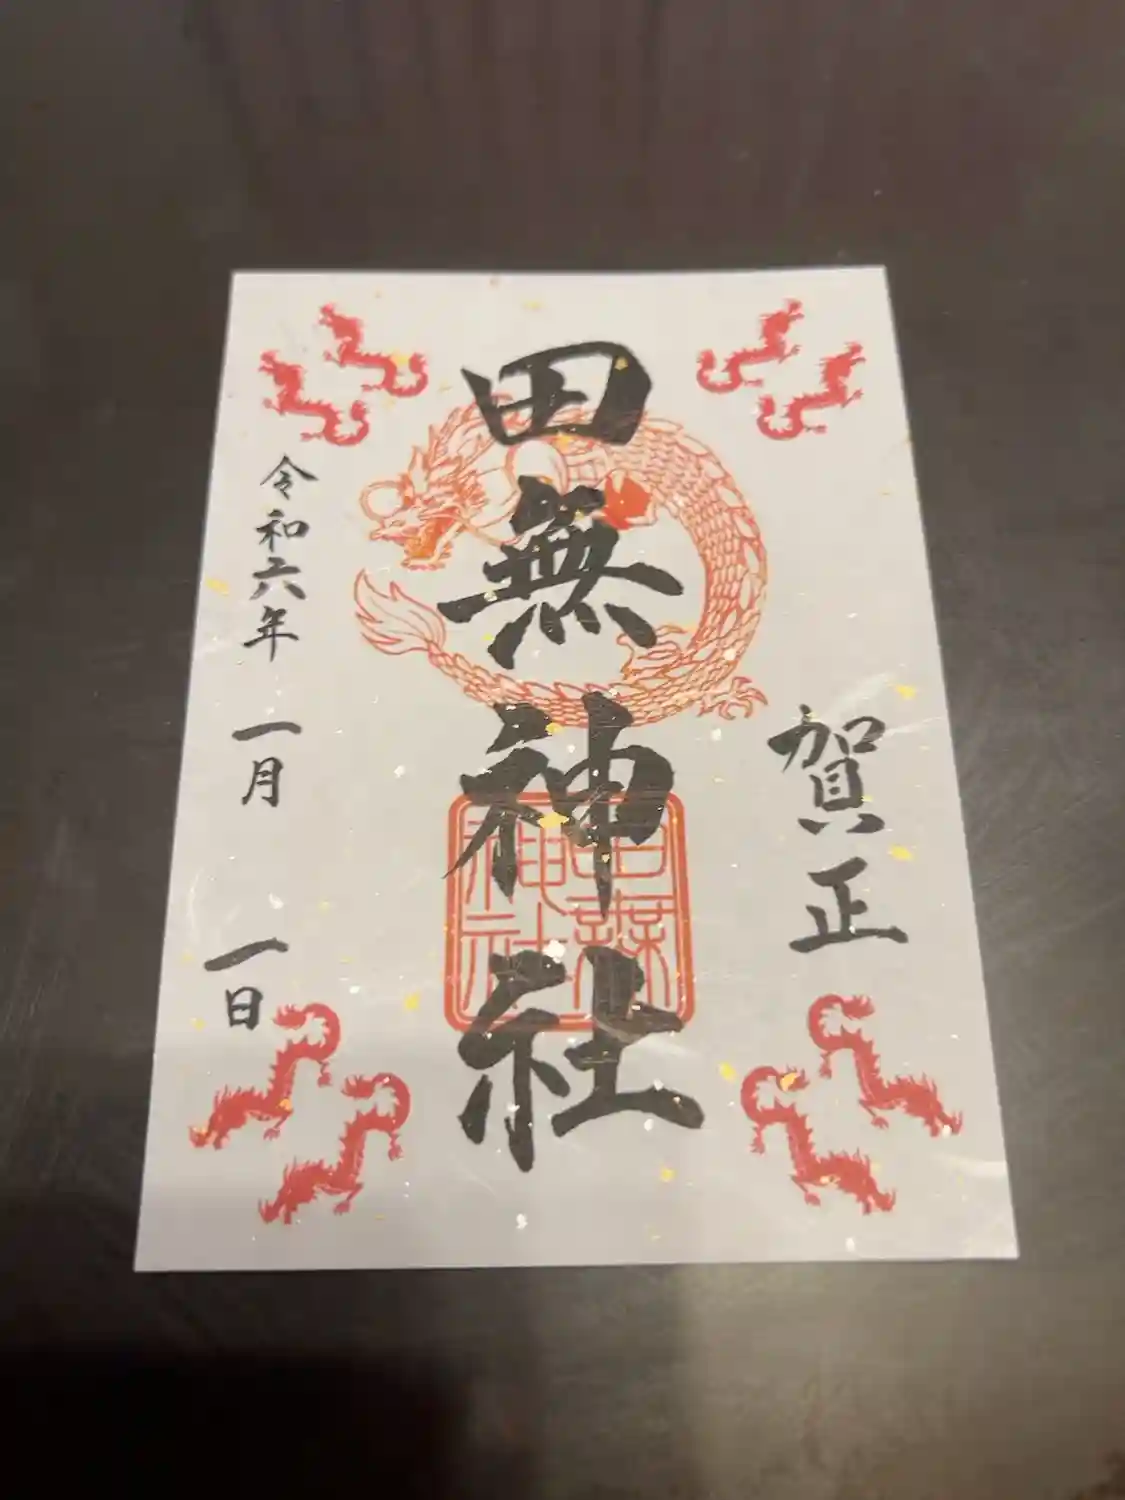 賀正
田無神社
令和六年 一月 一日
田無神社